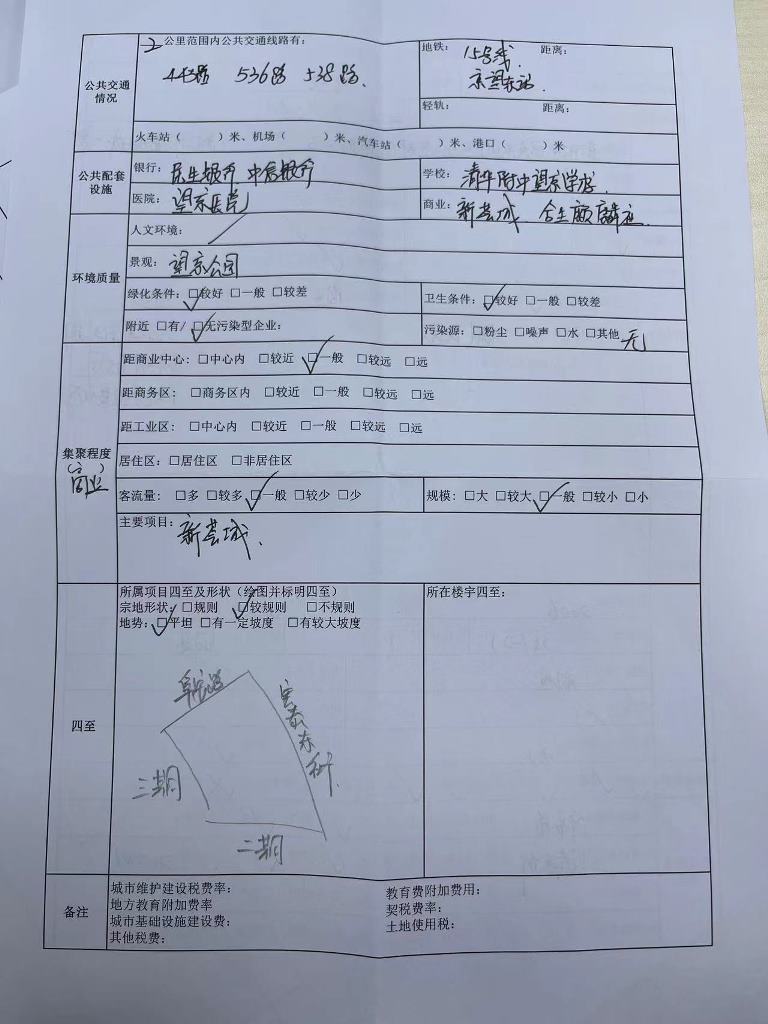 2 公里范围内公共交通线路有:
443路 536路 538路.
地铁: 15号线. 距离:
京望东站.
公共交通情况
轻轨: 距离:
火车站( )米、机场( )米、汽车站( )米、港口( )米
公共配套设施
银行: 民生银行 中信银行
学校: 清华附中望京学校.
医院: 望京医院
商业: 新荟城 合生麒麟社.
环境质量
人文环境:
景观: 望京公园
绿化条件: ☑较好 □一般 □较差
卫生条件: ☑较好 □一般 □较差
附近 □有/ ☑无污染型企业:
污染源: □粉尘 □噪声 □水 □其他 无
集聚程度
( )
商业
距商业中心: □中心内 □较近 ☑一般 □较远 □远
距商务区: □商务区内 □较近 □一般 □较远 □远
距工业区: □中心内 □较近 □一般 □较远 □远
居住区: □居住区 □非居住区
客流量: □多 □较多 ☑一般 □较少 □少
规模: □大 □较大 ☑一般 □较小 □小
主要项目: 新荟城.
四至
所属项目四至及形状(绘图并标明四至)
宗地形状: □规则 ☑较规则 □不规则
地势: ☑平坦 □有一定坡度 □有较大坡度
所在楼宇四至:
阜安路
宏泰东街.
三期
二期
备注
城市维护建设税费率:
教育费附加费用:
地方教育附加费率
契税费率:
城市基础设施建设费:
土地使用税:
其他税费: